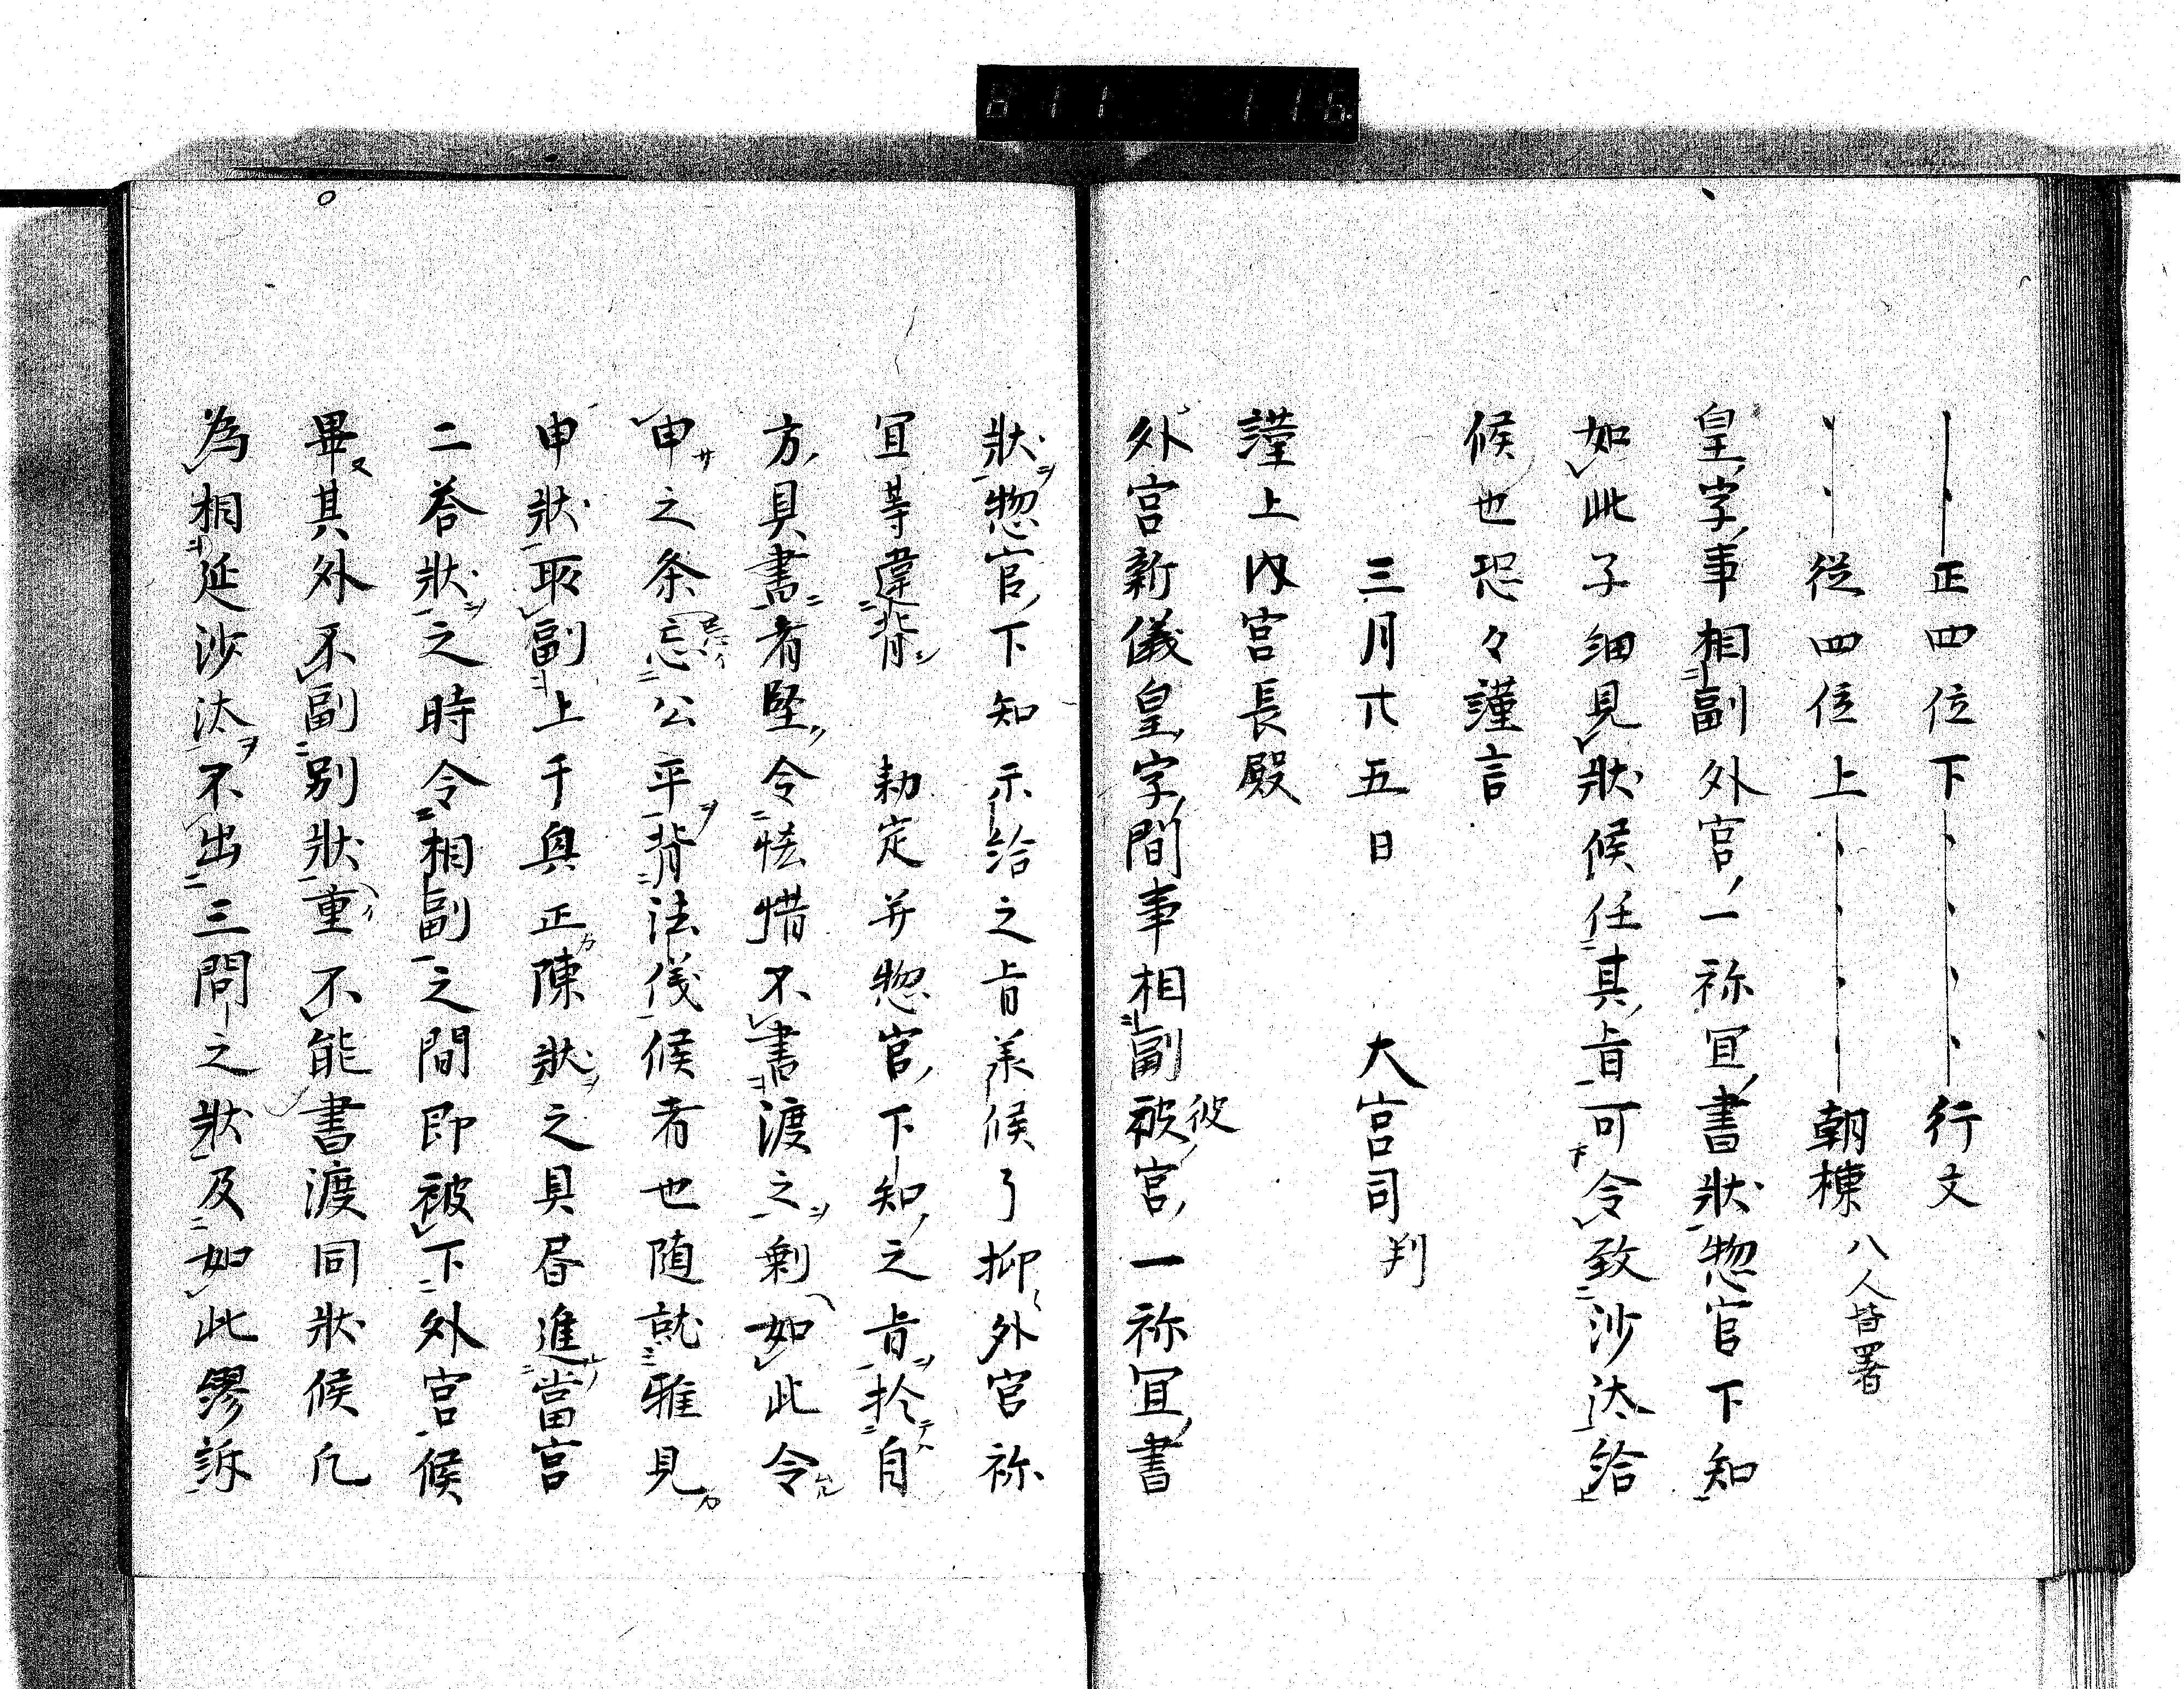 正四位下 行文
従四位上 朝棟 八人皆署
皇字事相副外宮一祢冝書状惣官下知
如此子細見状候任其旨可令致沙汰給
候也恐々謹言
三月廿五日 大宮司判
謹上内宮長殿
外宮新儀皇字間事相副被宮一祢冝書
彼
状惣官下知示給之旨承候了抑外宮祢
冝等違背 勅定并惣官下知之旨於自
方具書者堅令恡惜不書渡之剰如此令
申之条忘公平背法儀候者也随就雅見
申状取副上千與正陳状之具書進當宮
二答状之時令相副之間即被下外宮候
畢其外不副別状重不能書渡同状候凡
為相延沙汰不出三問之状及如此謬訴